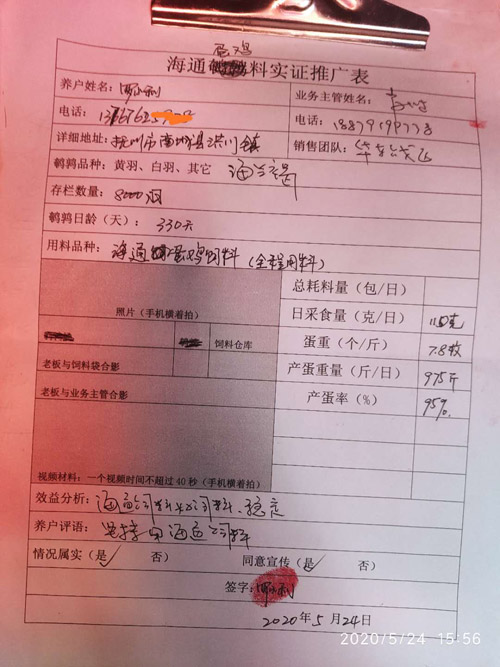 蛋鸡
海通料实证推广表
养户姓名：
业务主管姓名：
电话：
电话：
详细地址：抚州市南城县洪门镇
销售团队：
鹌鹑品种：黄羽、白羽、其它 海兰褐
存栏数量：8000羽
鹌鹑日龄（天）：330天
用料品种：海通蛋鸡饲料（全程用料）
总耗料量（包/日）
照片（手机横着拍）
日采食量（克/日）
饲料仓库
蛋重（个/斤） 7.8枚
老板与饲料袋合影
产蛋重量（斤/日） 975斤
老板与业务主管合影
产蛋率（%） 95%
视频材料：一个视频时间不超过40秒（手机横着拍）
效益分析：
养户评语：坚持用海通饲料
情况属实（是✓ 否）
同意宣传（是✓ 否）
签字：
2020年5月24日
2020/5/24 15:56